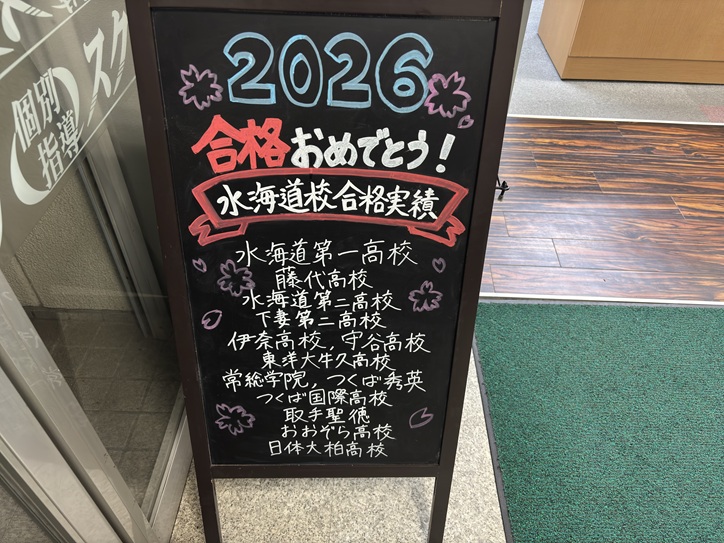 個別
指導
スク
2026
合格おめでとう!
水海道校合格実績
水海道第一高校
藤代高校
水海道第二高校
下妻第二高校
伊奈高校,守谷高校
東洋大牛久高校
常総学院,つくば秀英
つくば国際高校
取手聖徳
おおぞら高校
日体大柏高校